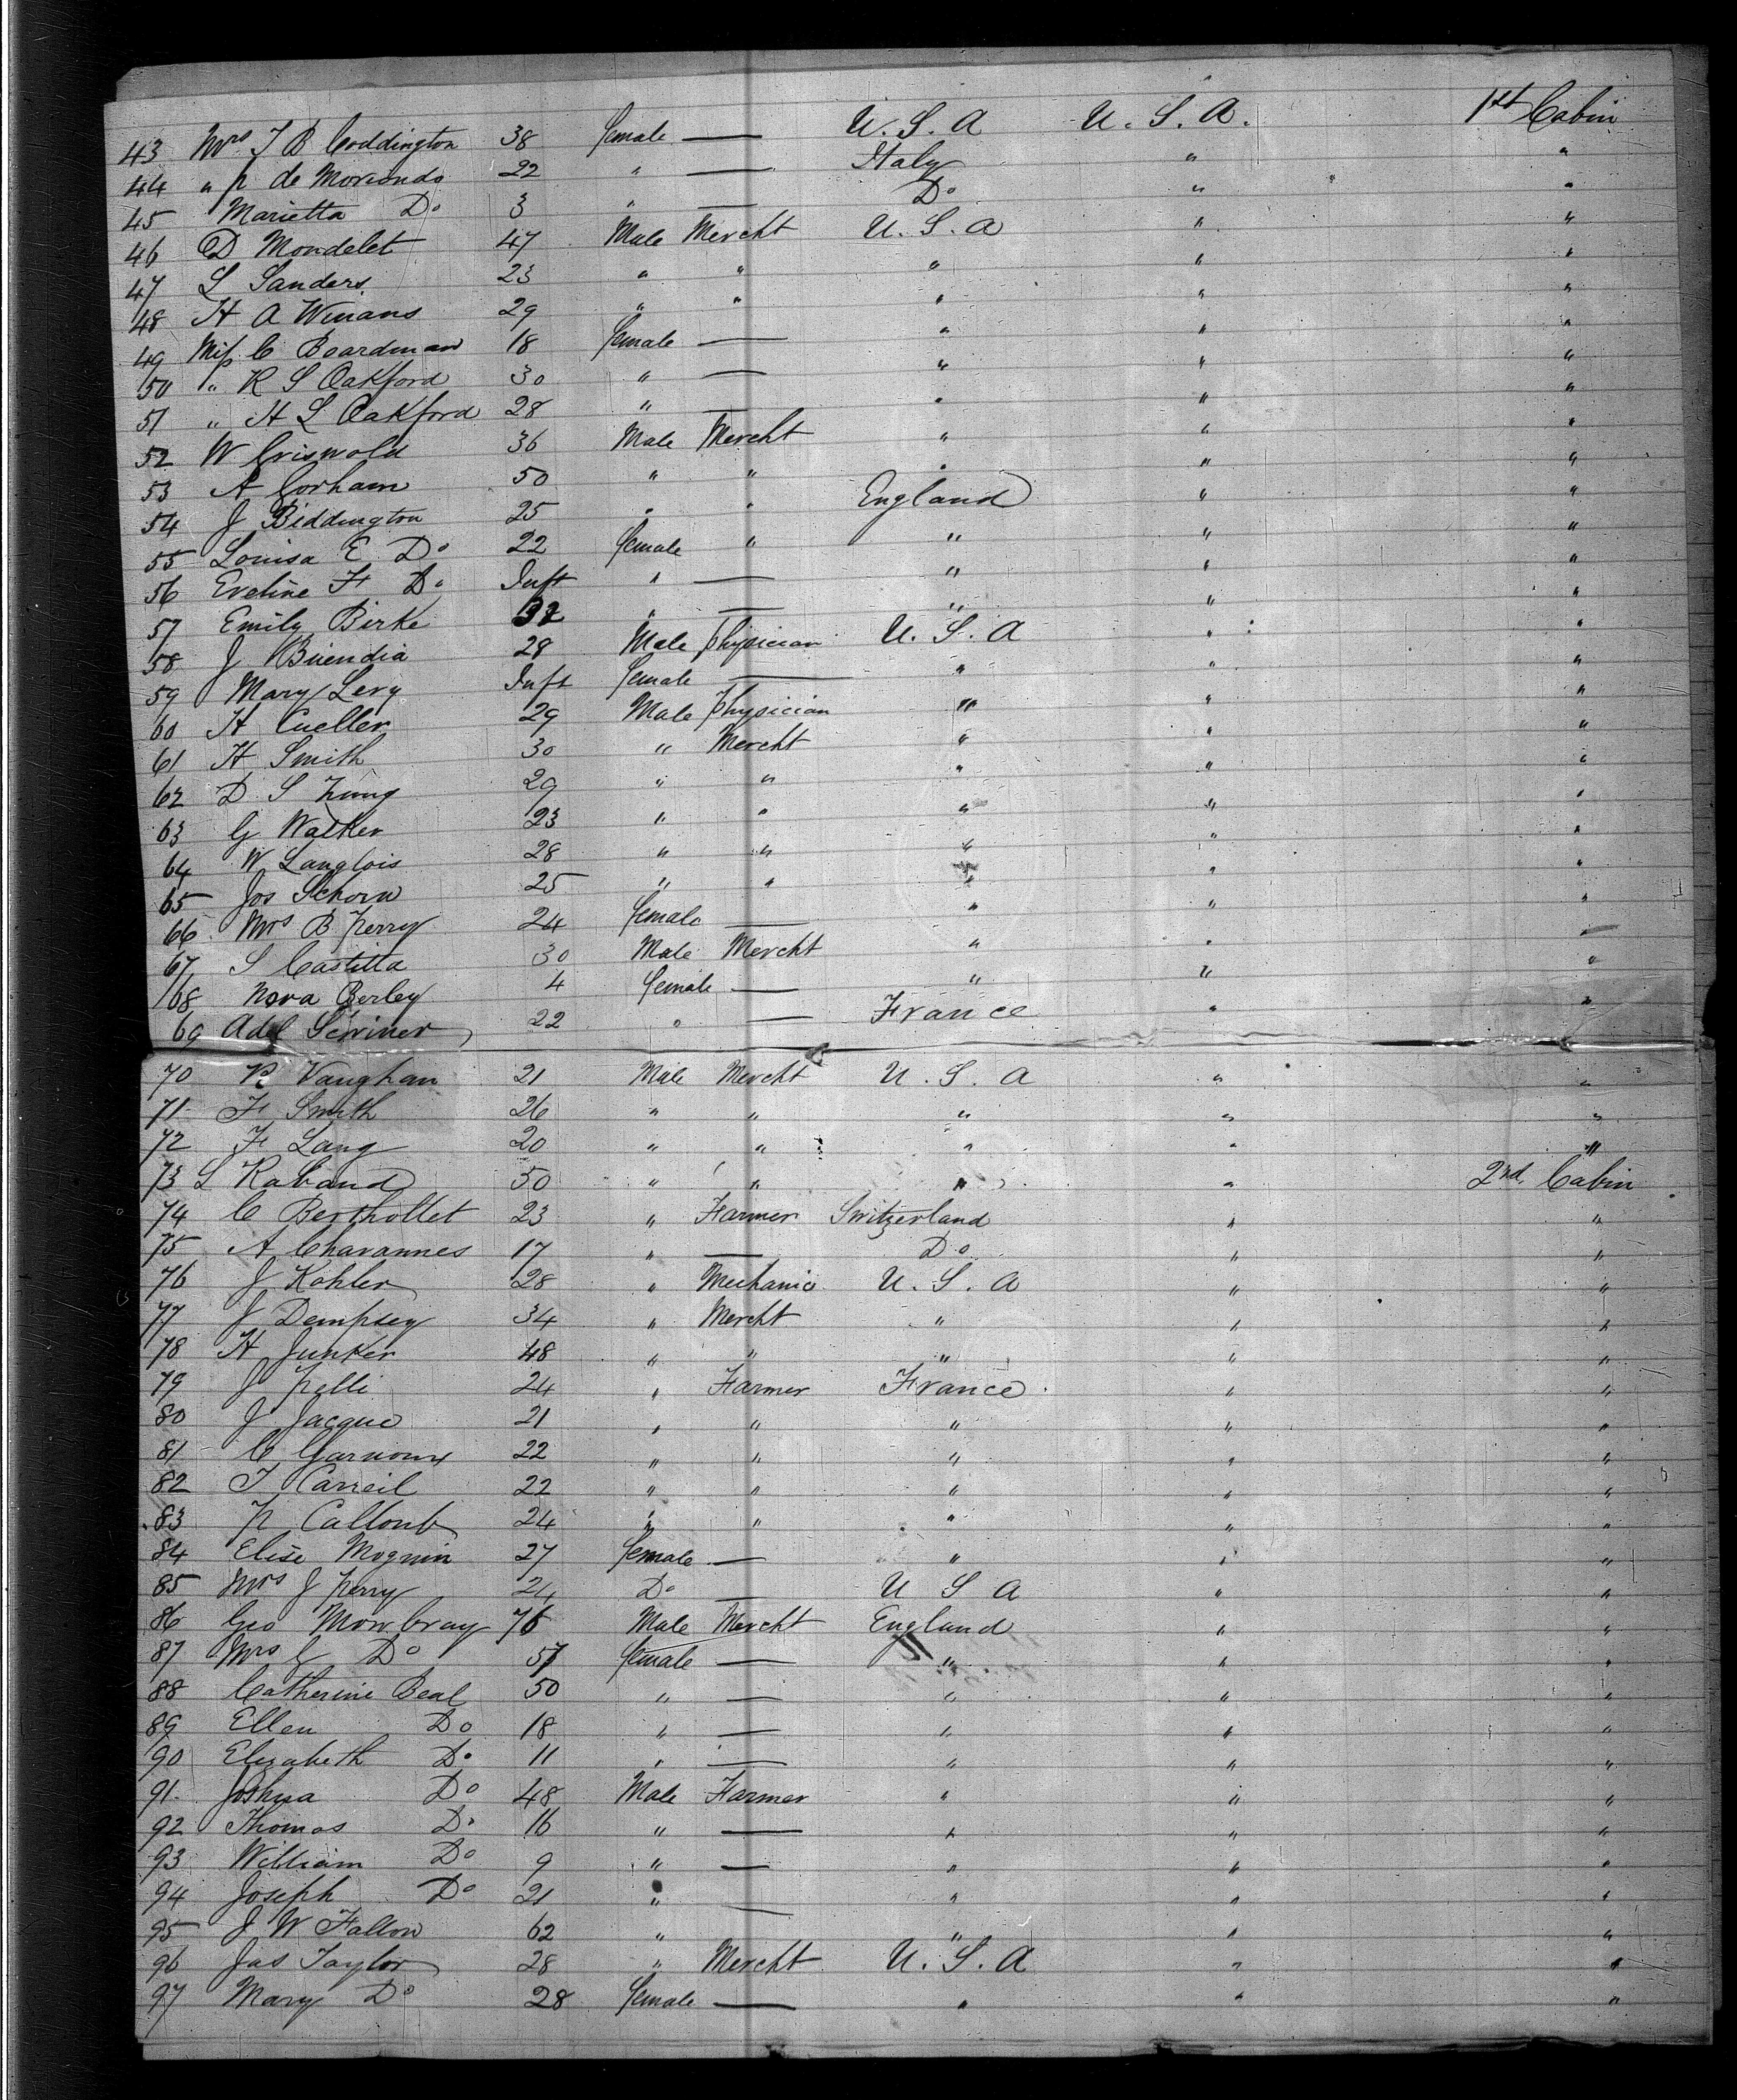 43 Mrs J B Coddington 38 female — U.S.A U.S.A. 1st Cabin
44 " P. de Moriondo 22 " — Italy " "
45 Marietta Do 3 " — Do " "
46 D Mondelet 47 Male Mercht U.S.A " "
47 L Sanders 23 " " " " "
48 H A Winans 29 " " " " "
49 Miss C Boardman 18 female — " " "
50 " R S Oakford 30 " — " " "
51 " H L Oakford 28 " — " " "
52 W Griswold 36 Male Mercht " " "
53 A Gorham 50 " " " " "
54 J Biddington 25 " " England " "
55 Louisa E Do 22 female " " " "
56 Eveline H Do Inft " — " " "
57 Emily Birke 32 " — " " "
58 J Buendia 28 Male Physician U.S.A " "
59 Mary Levy Inft female — " " "
60 H Cueller 29 Male Physician " " "
61 H Smith 30 " Mercht " " "
62 D S 29 " " " " "
63 G Walker 23 " " " " "
64 W Langlois 28 " " " " "
65 Jos Schorn 25 " " " " "
66 Mrs B Perry 24 female — " " "
67 S Castilla 30 Male Mercht " " "
68 Nora Berley 4 female — " " "
69 Adel Scriner 22 " — France " "
70 R Vaughan 21 Male Mercht U.S.A " "
71 F Smith 26 " " " " "
72 F Lang 20 " " " " "
73 L Raband 50 " " " " 2nd Cabin
74 C Berthollet 23 " Farmer Switzerland " "
75 A Chavannes 17 " — Do " "
76 J Kohler 28 " Mechanic U.S.A " "
77 J Dempsey 34 " Mercht " " "
78 H Junker 48 " " " " "
79 J Pelli 24 " Farmer France " "
80 J Jacque 21 " " " " "
81 C Garnoux 22 " " " " "
82 J Carreil 22 " " " " "
83 P Calloub 24 " " " " "
84 Elise Mognin 27 female — " " "
85 Mrs J Perry 24 Do — U S A " "
86 Geo Mowbray 76 Male Mercht England " "
87 Mrs G Do 57 female — " " "
88 Catherine Beal 50 " — " " "
89 Ellen Do 18 " — " " "
90 Elizabeth Do 11 " — " " "
91 Joshua Do 48 Male Farmer " " "
92 Thomas Do 16 " — " " "
93 William Do 9 " — " " "
94 Joseph Do 21 " — " " "
95 J W Fallon 62 " " " "
96 Jas Taylor 28 " Mercht U.S.A " "
97 Mary Do 28 female — " " "